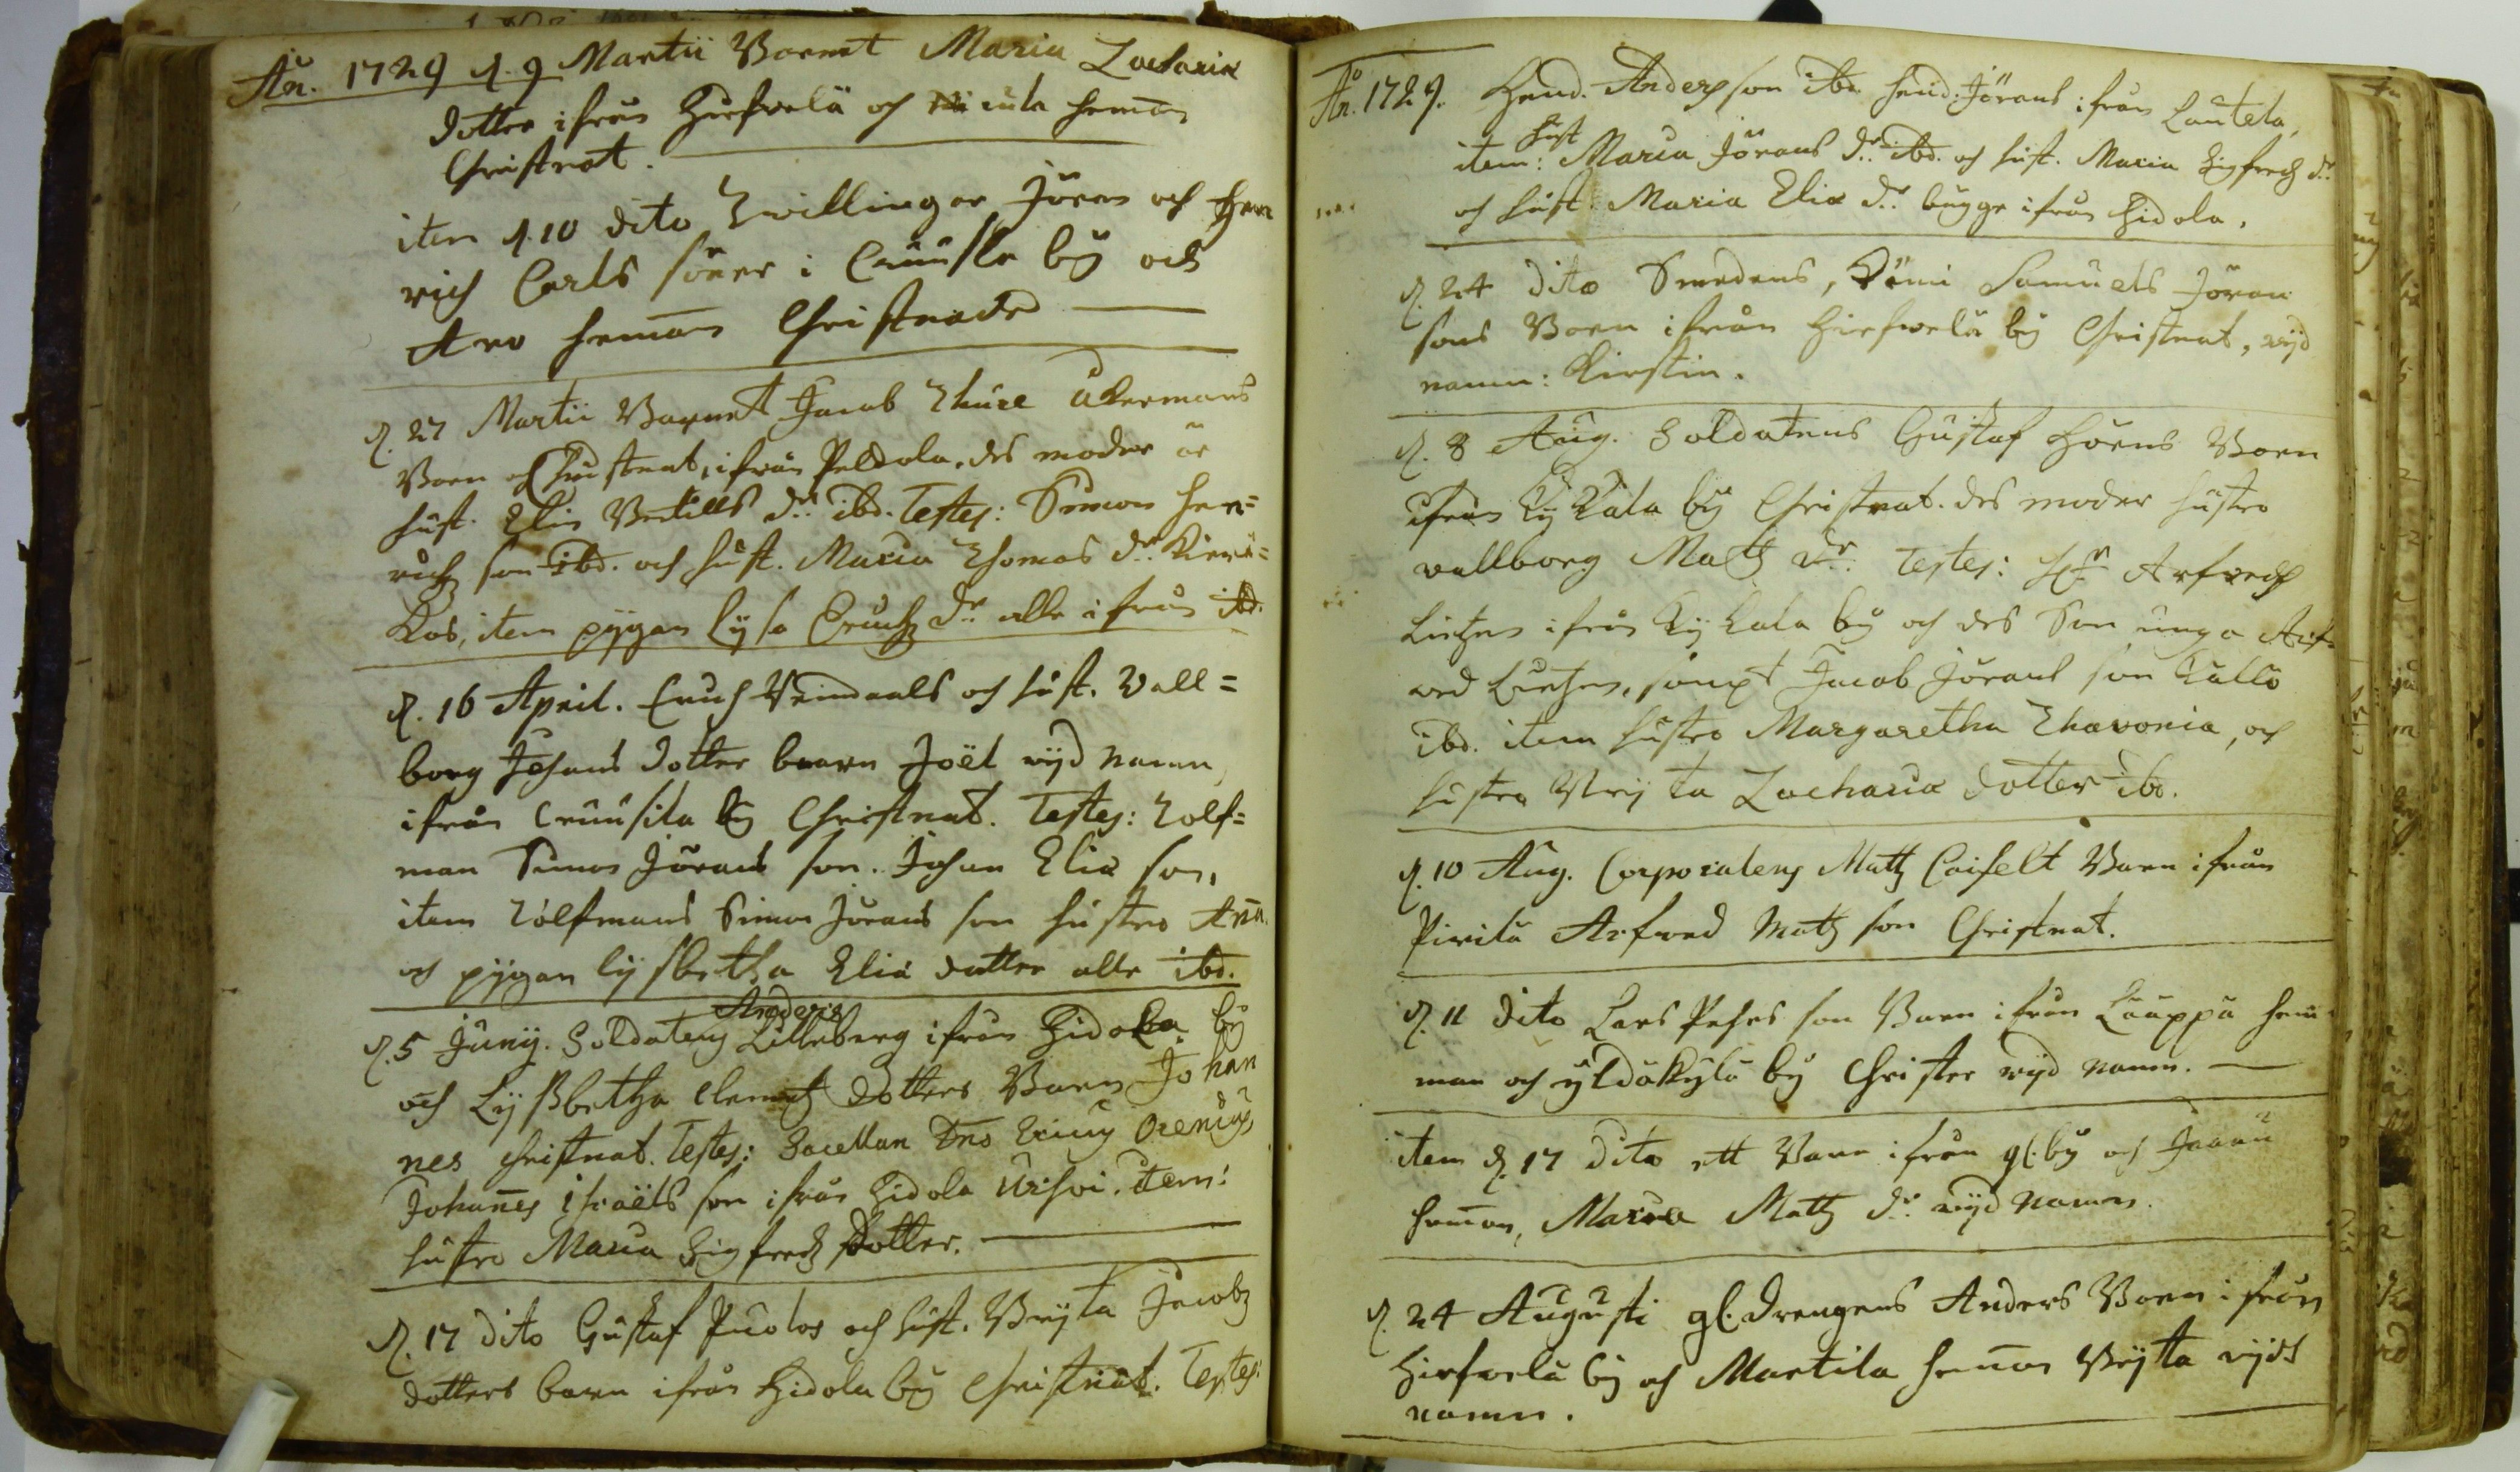 Añ. 1729 d. 9 Martii Barnet Maria Zachariæ
dotter ifrån Hirfwelä och hemon
Christnat.
item d. 10 dito Zwillingar Jören och Hen
rich Carls söner i by och
Aro hemon Christnade
d. 27 Martii Barnet Jacob Thure Åkermans
Barn och Christnat, ifrån Peldola. des moder är
hust. Elin Bertills dr ibd. Testes: Simon Hen=
richz son ibd. och hust. Maria Thomas dr
item pygan Lysa Erichz dr alle ifrån ibd.
d. 16 April. Erich och hust. Wall=
borg Johans dotter baarn Joël wyd namn,
ifrån by Christnat. Testes: Tolf=
man Simon Jörans son. Johan Eliæ son,
item Tolfmans Simon Jörans son hustro Aña
och pygan Lysbetha Eliæ dotter alle ibd.
Anders
d. 5 Junij. Soldatens Lilleberg ifrån Hidola by
och Lyssbetha Clemetz dotters Barn Johan
nes Christnat. Testes: Sacellan Dno Ericus Orenius,
Johañes Israëls son ifrån Hidola item:
hustro Maria Sigfredz Dotter.
d. 17 dito Gustaf och hust. Bryta Jacobz
dotters barn ifrån Hidola by Christnat. Testes:
Añ. 1729. Hend. Anderss son ibd. Hend. Jörans ifrån Lautela,
hust
item: Maria Jörans dr ibd. och hust. Maria Sigfredz dr
och hust. Maria Eliæ dr bugge ifrån Hidola.
d. 24 dito Smedens, Samuels Jöran
sons Barn ifrån Hirfwelä by Christnat, wyd
namn: Kirstin.
d. 8 Aug. Soldatens Gustaf Horns Barn
ifrån Kykala by Christnat. des moder hustro
wallborg Matz dr. Testes: Hr Arfwedh
ifrån Kykala by och des Son unga Arf-
wed sampt Jacob Jörans son Kallo
ibd. item hustro Margaretha Thavonia, och
hustro Bryta Zachariæ dotter ibd.
d. 10 Aug. Corporalens Matz Caifelt Barn ifrån
Pirilä Arfwed Matz son Christnat.
d. 11 dito Lars son Barn ifrån hem
man och yldäkylä by Christer wyd namn.
item d. 17 dito ett Barn ifrån gl. by och Jaaru
hemon, Maria Matz dr wyd namn.
d. 24 Augusti gl. Drengens Anders Barn ifrån
Hirfwelä by och Martila hemon Bryta wyd
namn.